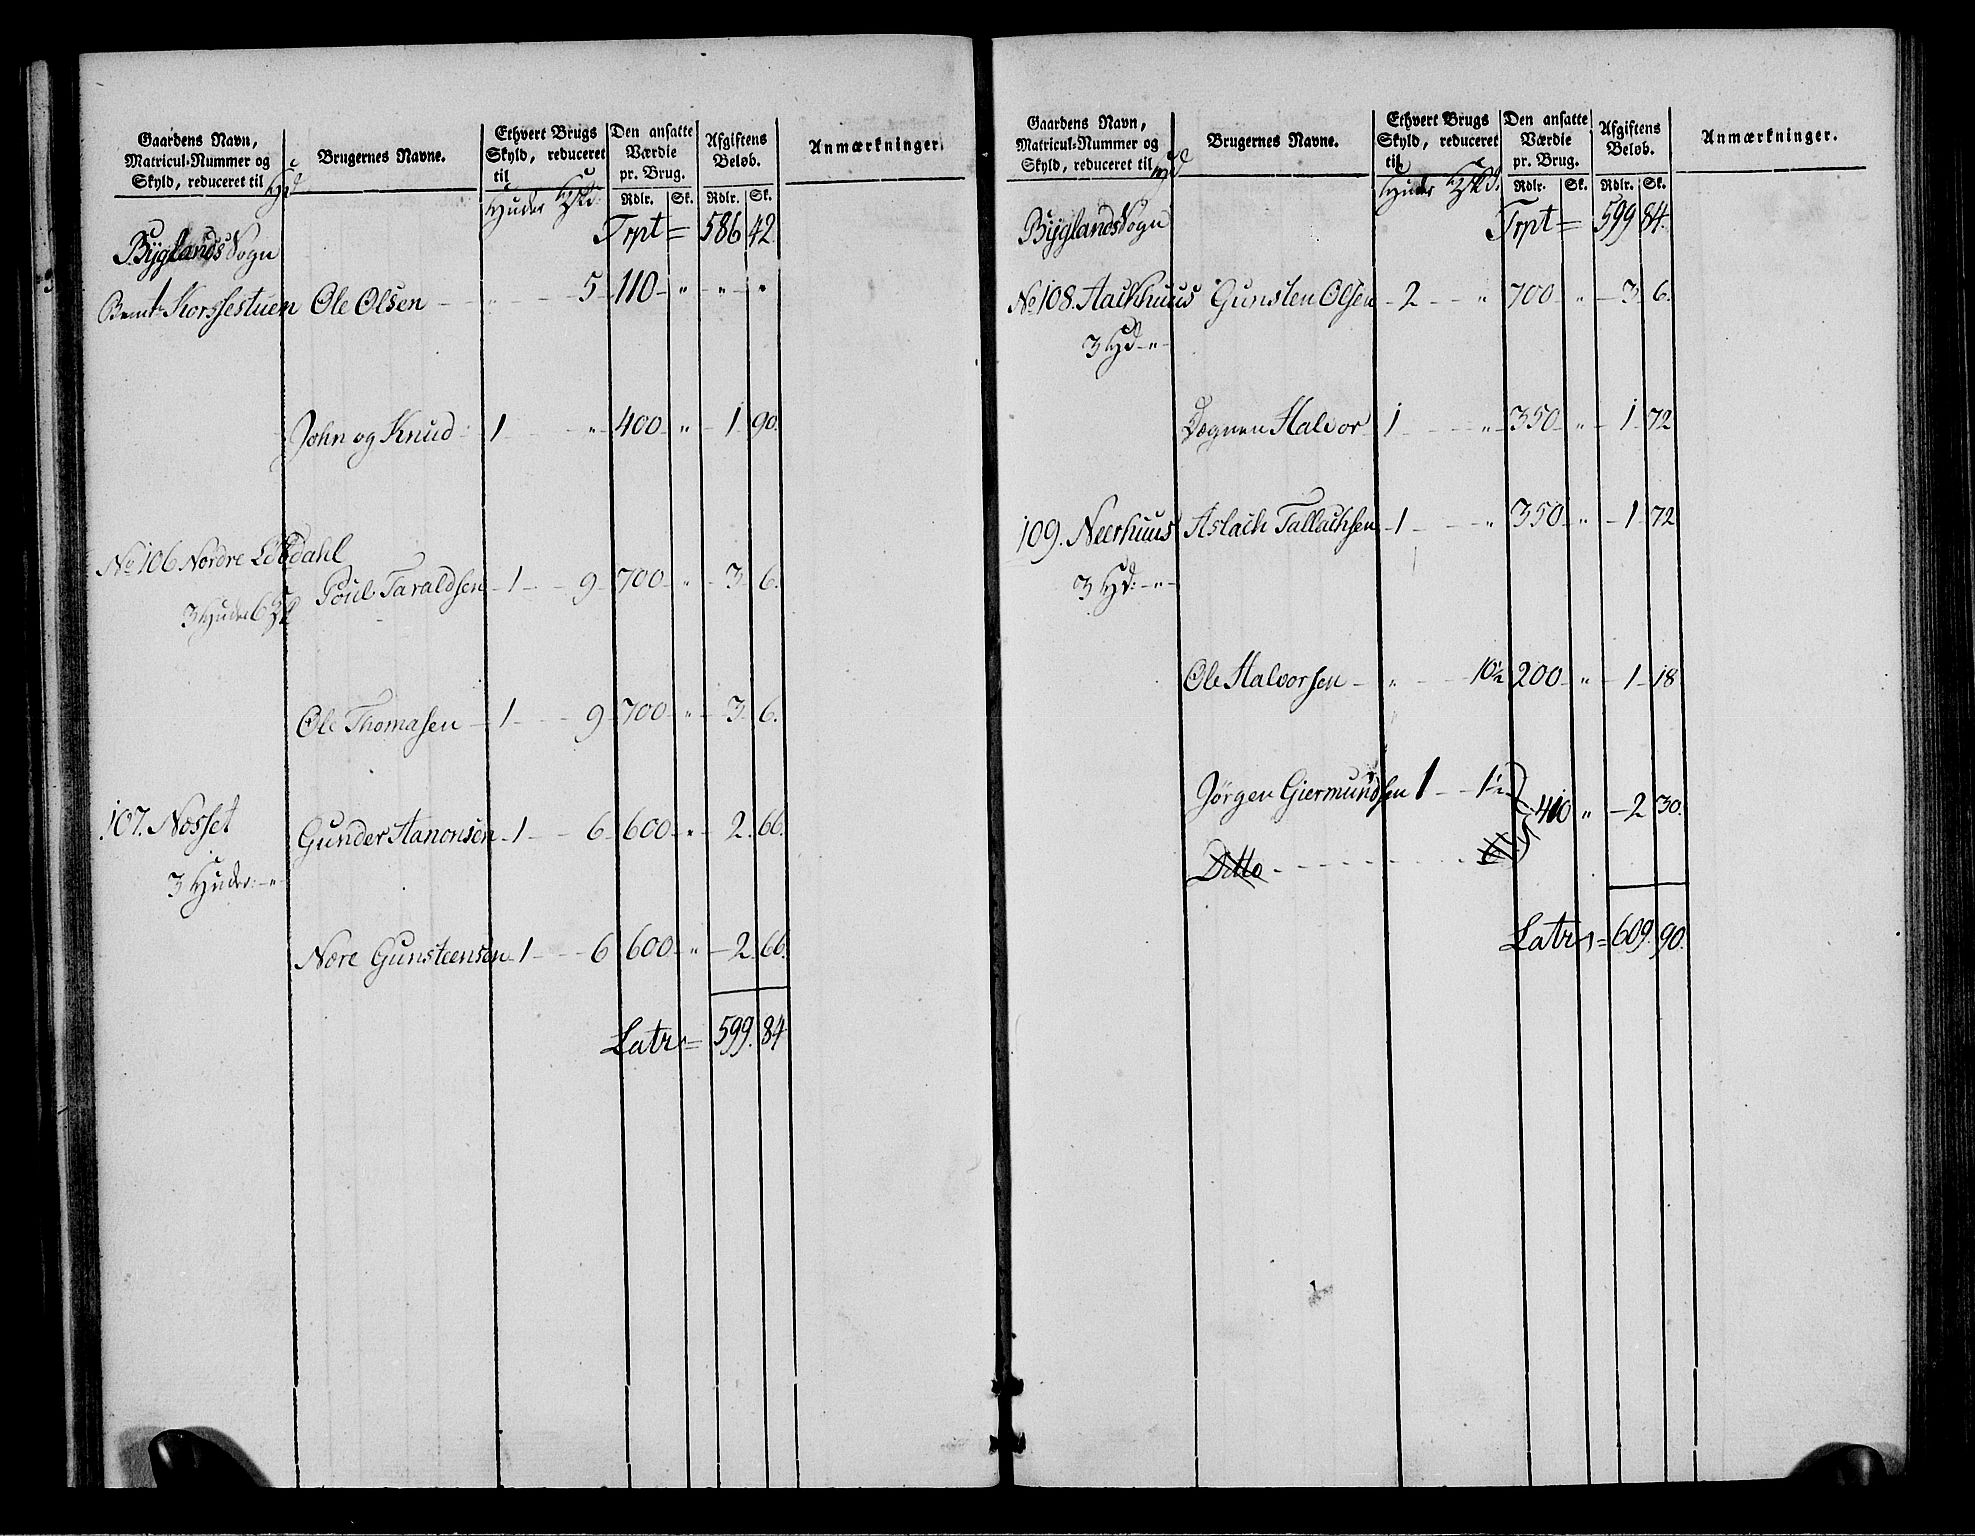 Gaardens Navn, Matricul-Nummer og Skyld, reduceret til Hd | Brugernes Navne. | Ethvert Brugs Skyld, reduceret til Huder | Den ansatte Værdie pr. Brug. Rdlr. Sk. | Afgiftens Beløb. Rdlr. Sk. | Anmærkninger.
Byglands Sogn Trpt = 586 42.
Korssestuen Ole Olsen - „ - 5 110 „ „ „
John og Knud 1 - „ 400 „ 1 90.
No 106 Nordre Lødahl
Poul Taraldsen 1 - 9 700 „ 3 6.
3 Huder 6
Ole Thomasen 1 - 9 700 „ 3 6.
107. Nosset
Gunder Aanonsen 1 - 6 600 „ 2 66.
3 Huder -„-
Nore Gunsteensen 1 - 6 600 „ 2 66.
Latr = 599. 84
Gaardens Navn, Matricul-Nummer og Skyld, reduceret til | Brugernes Navne. | Ethvert Brugs Skyld, reduceret til Huder | Den ansatte Værdie pr. Brug. Rdlr. Sk. | Afgiftens Beløb. Rdlr. Sk. | Anmærkninger.
Byglands Sogn Trpt = 599 84.
No 108. Aackhuus Gunsten Olsen 2 - „ 700 „ 3 6.
3 Hd -„-
Dognen Halvor 1 - „ 350 „ 1 72
109. Neerhuus Aslach Tallachsen 1 - „ 350 „ 1 72
3 Hd: -„-
Ole Halvorsen - „ - 10½ 200 „ 1 18
Jörgen Giermundsen 1 - 1½ 410 „ 2 30.
Ditto
Latr = 609. 90.